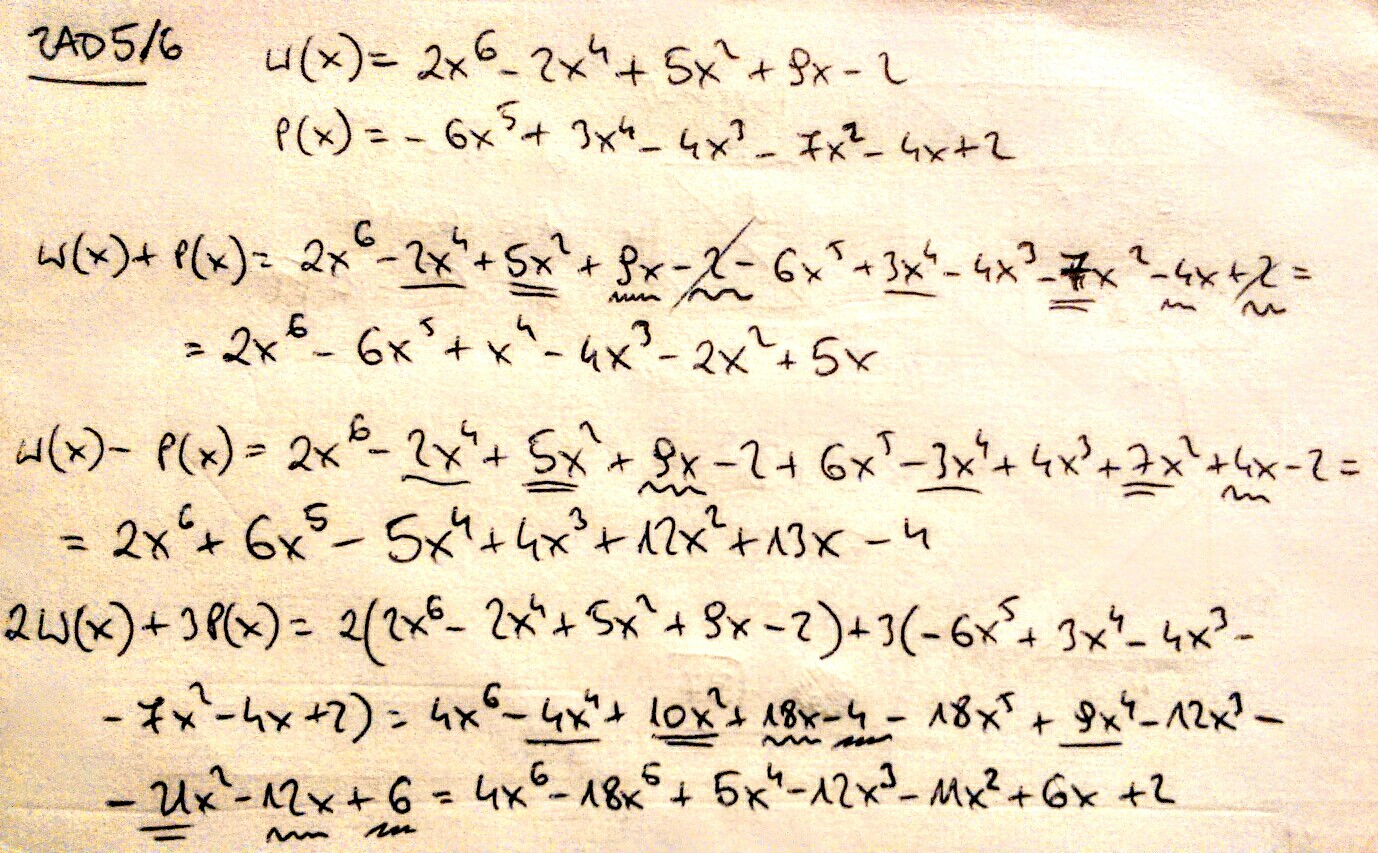 ZAD 5/6
W(x) = 2x⁶ - 2x⁴ + 5x² + 9x - 2
P(x) = - 6x⁵ + 3x⁴ - 4x³ - 7x² - 4x + 2
W(x) + P(x) = 2x⁶ - 2x⁴ + 5x² + 9x - 2 - 6x⁵ + 3x⁴ - 4x³ - 7x² - 4x + 2 =
= 2x⁶ - 6x⁵ + x⁴ - 4x³ - 2x² + 5x
W(x) - P(x) = 2x⁶ - 2x⁴ + 5x² + 9x - 2 + 6x⁵ - 3x⁴ + 4x³ + 7x² + 4x - 2 =
= 2x⁶ + 6x⁵ - 5x⁴ + 4x³ + 12x² + 13x - 4
2W(x) + 3P(x) = 2(2x⁶ - 2x⁴ + 5x² + 9x - 2) + 3(- 6x⁵ + 3x⁴ - 4x³ -
- 7x² - 4x + 2) = 4x⁶ - 4x⁴ + 10x² + 18x - 4 - 18x⁵ + 9x⁴ - 12x³ -
- 21x² - 12x + 6 = 4x⁶ - 18x⁵ + 5x⁴ - 12x³ - 11x² + 6x + 2